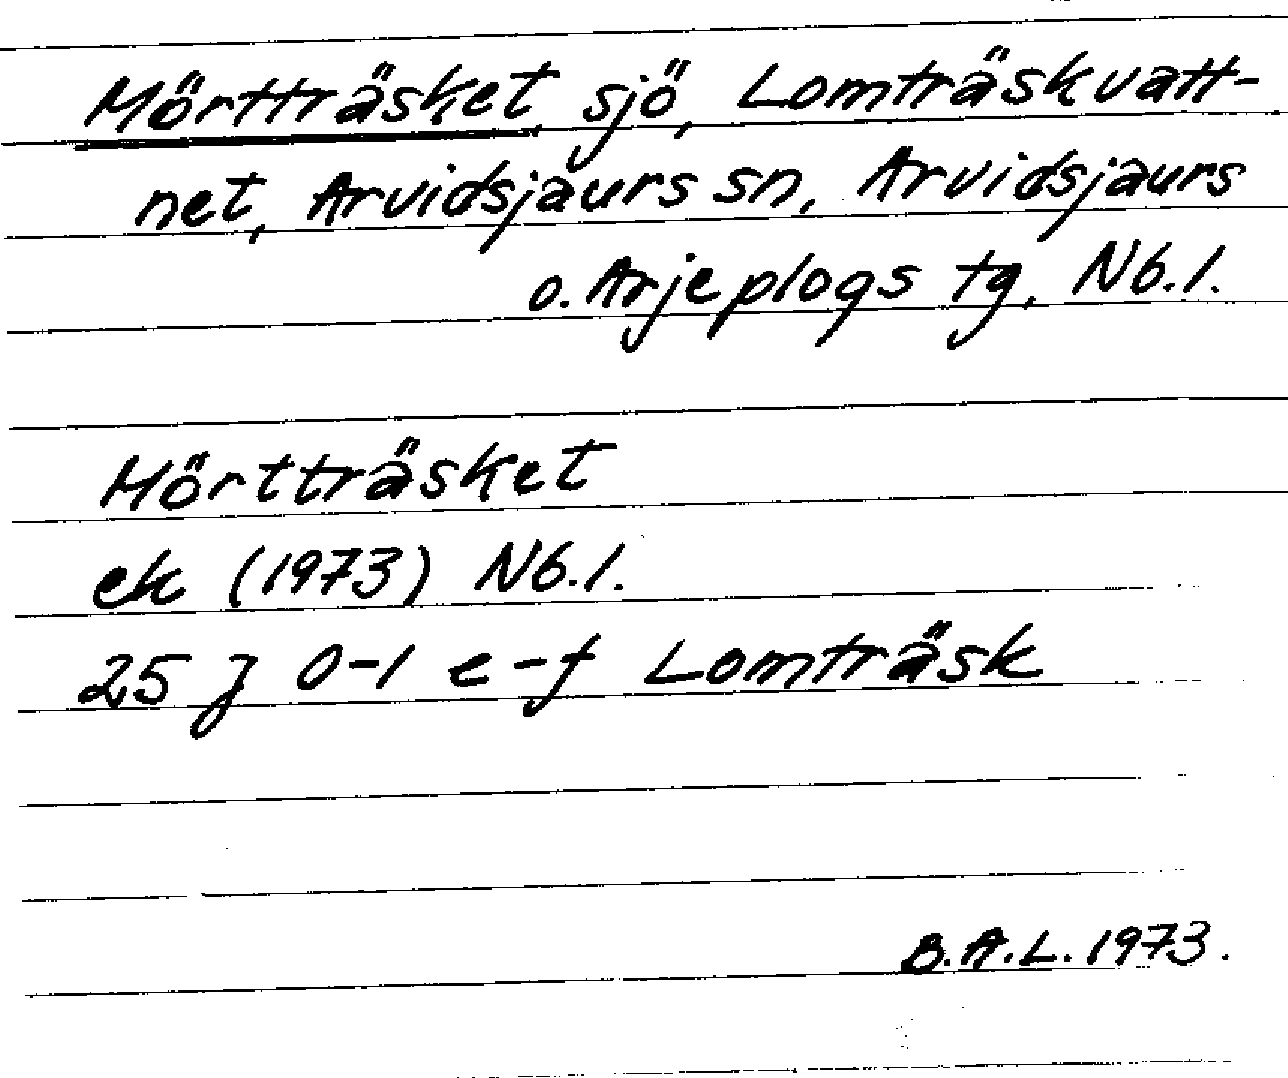 Mörtträsket sjö, Lomträskvatt-
net, Arvidsjaurs sn, Arvidsjaurs
o. Arjeplogs tg, Nb.l.
Mörtträsket
ek (1973) Nb.l.
25 J 0-1 e-f Lomträsk
B.A.L. 1973.